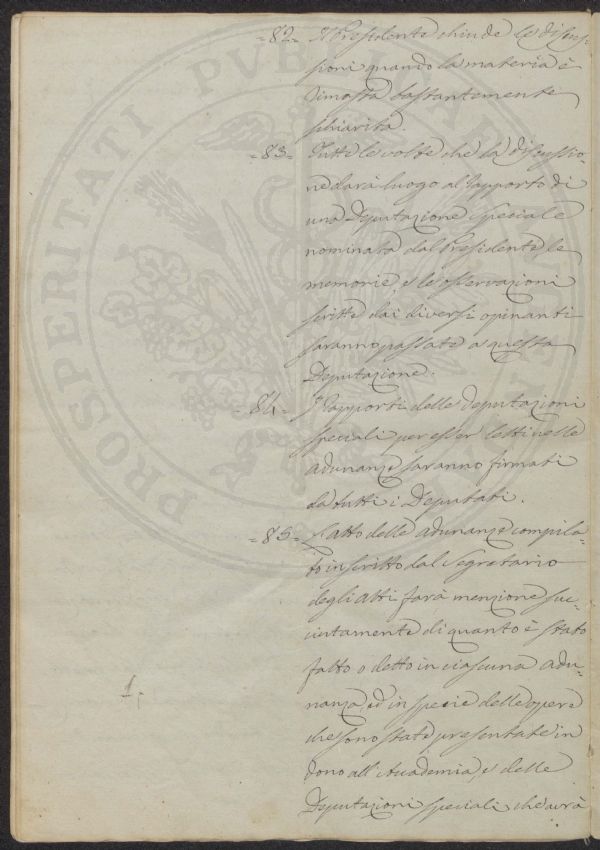 =82= Il Presidente chiude le discus-
sioni quando la materia è
rimasta bastantemente
schiarita.
=83= Tutte le volte che la discussio
ne darà luogo al rapporto di
una Deputazione speciale
nominata dal Presidente, le
memorie, e le osservazioni
scritte dai diversi opinanti
saranno passate a questa
Deputazione.
=84= I rapporti delle deputazioni
speciali per esser letti nelle
adunanze saranno firmati
da tutti i Deputati.
=85= L'atto delle adunanze compila-
to in scritto dal Segretario
degli Atti farà menzione suc-
cintamente di quanto è stato
fatto o detto in ciascuna adu-
nanza, ed in specie delle opere
che sono state presentate in
dono all'Accademia, e delle
Deputazioni speciali che avrà
1.
PROSPERITATI PUB